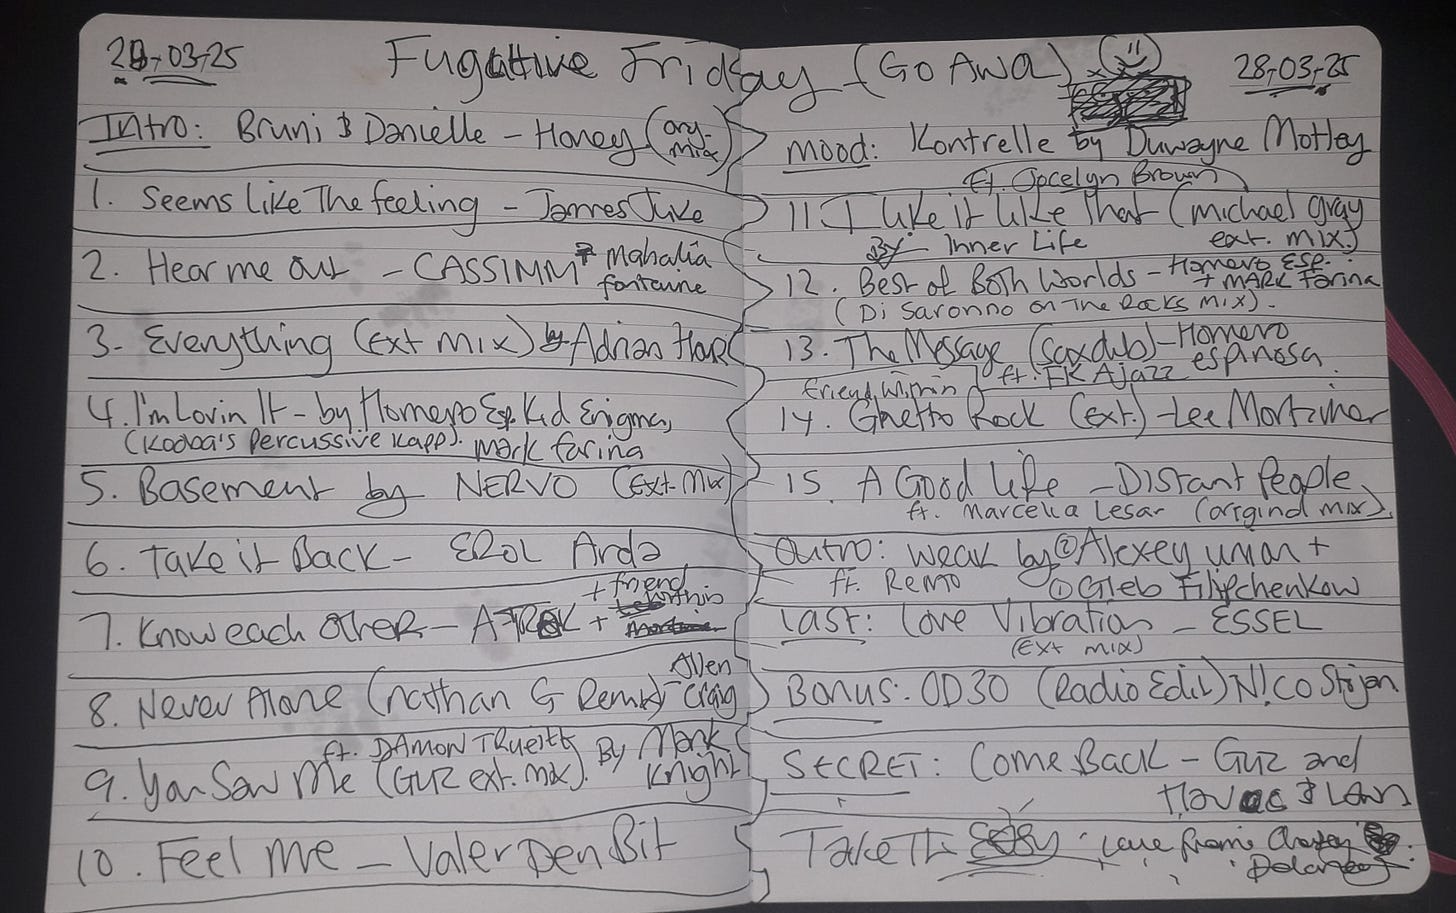 28-03-25
Fugative Friday (GO AWOL)
28-03-25
Intro: Bruni & Danielle - Honey (org. mix)
1. Seems Like The feeling - James Juke
2. Hear me out - CASSIMM + Mahalia fontaine
3- Everything (Ext mix) by Adrian Hour
4. I'm Lovin It - by Homero Esp. Kid Enigma,
(Kooba's Percussive Kapp). mark farina
5. Basement by NERVO (Ext. Mix)
6. Take it Back - EROL Arda
7. Know each other - ATROK + friend within
8. Never Alone (nathan G Remix) - Allen Craig
ft. DAMON TRueitt
9. You Saw Me (GUZ ext. mix). By Mark Knight
10. Feel Me - Valer Den Bit
mood: Kontrelle by Duwayne Motley
ft. Jocelyn Brown
11. I Like it Like That (michael gray ext. mix.)
By - Inner Life
12. Best of Both Worlds - Homero Esp. + MARK Farina
(Di Saronno on The Rocks mix).
13. The Message (Saxdub) - Homero espinosa
ft. FKAjazz
friend within
14. Ghetto Rock (ext.) - Lee Mortimer
15. A Good Life - Distant People
ft. Marcella Lesar (original mix).
Outro: weak by ② Alexey union +
ft. Remo ① Gleb Filipchenkow
Last: Love Vibration - ESSEL
(Ext mix)
Bonus: OD30 (Radio Edit) N!CO Strijan
SECRET: Come Back - Guz and
Take It Easy love from
Delaney